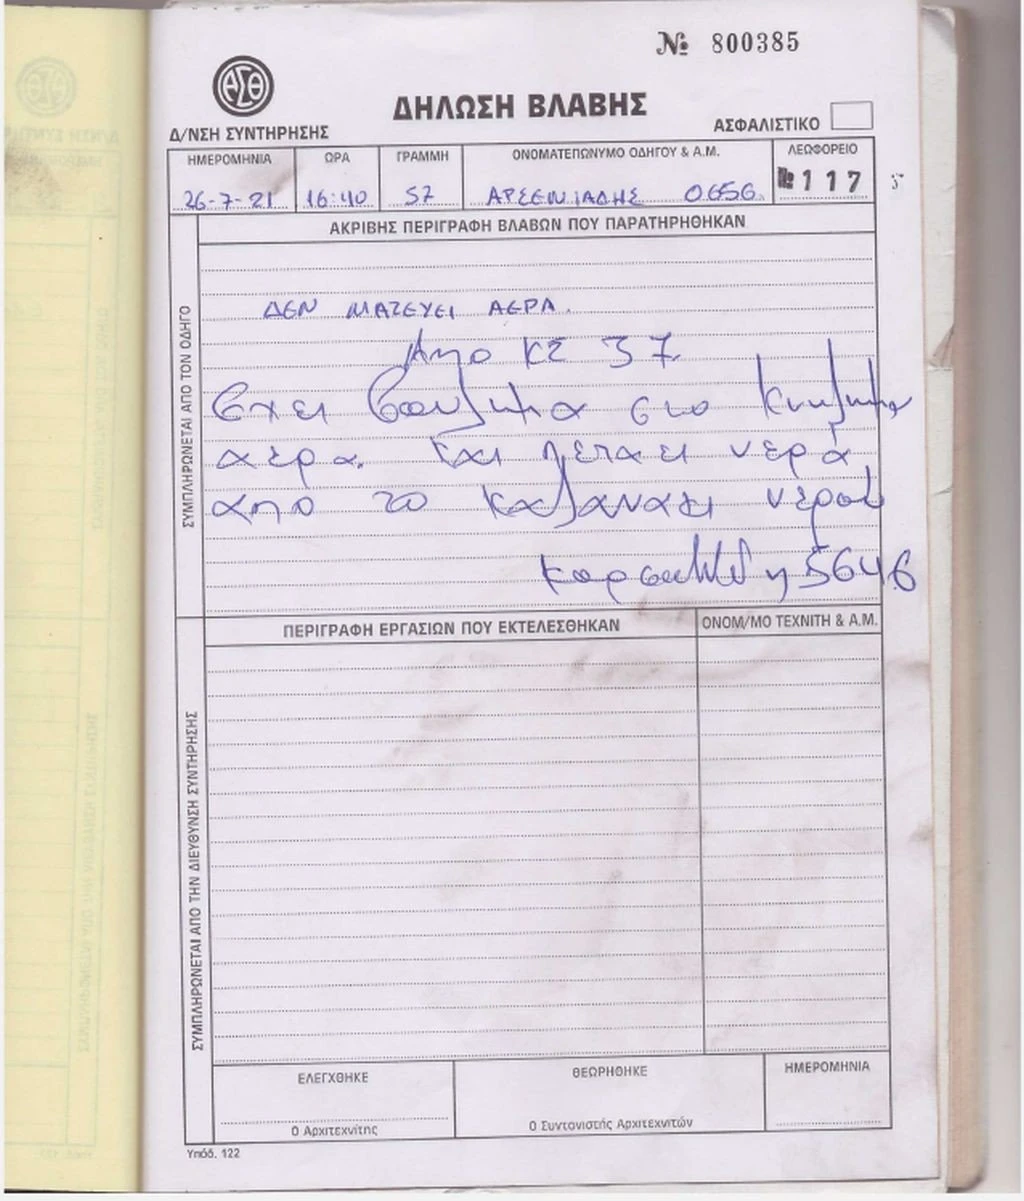 № 800385
ΑΣΘ
Δ/ΝΣΗ ΣΥΝΤΗΡΗΣΗΣ
ΔΗΛΩΣΗ ΒΛΑΒΗΣ
ΑΣΦΑΛΙΣΤΙΚΟ
ΗΜΕΡΟΜΗΝΙΑ ΩΡΑ ΓΡΑΜΜΗ ΟΝΟΜΑΤΕΠΩΝΥΜΟ ΟΔΗΓΟΥ & Α.Μ. ΛΕΩΦΟΡΕΙΟ
26-7-21 16:40 57 ΑΡΣΕΝΙΑΔΗΣ 0656 № 117
ΑΚΡΙΒΗΣ ΠΕΡΙΓΡΑΦΗ ΒΛΑΒΩΝ ΠΟΥ ΠΑΡΑΤΗΡΗΘΗΚΑΝ
ΣΥΜΠΛΗΡΩΝΕΤΑΙ ΑΠΟ ΤΟΝ ΟΔΗΓΟ
ΔΕΝ ΜΑΖΕΥΕΙ ΑΕΡΑ.
Απο ΚΣ 37
Εχει στο
αερα. και πεταει νερά
απο το καζανακι νερου
5646
ΠΕΡΙΓΡΑΦΗ ΕΡΓΑΣΙΩΝ ΠΟΥ ΕΚΤΕΛΕΣΘΗΚΑΝ ΟΝΟΜ/ΜΟ ΤΕΧΝΙΤΗ & Α.Μ.
ΣΥΜΠΛΗΡΩΝΕΤΑΙ ΑΠΟ ΤΗΝ ΔΙΕΥΘΥΝΣΗ ΣΥΝΤΗΡΗΣΗΣ
ΕΛΕΓΧΘΗΚΕ ΘΕΩΡΗΘΗΚΕ ΗΜΕΡΟΜΗΝΙΑ
Ο Αρχιτεχνίτης Ο Συντονιστής Αρχιτεχνιτών
Υπόδ. 122